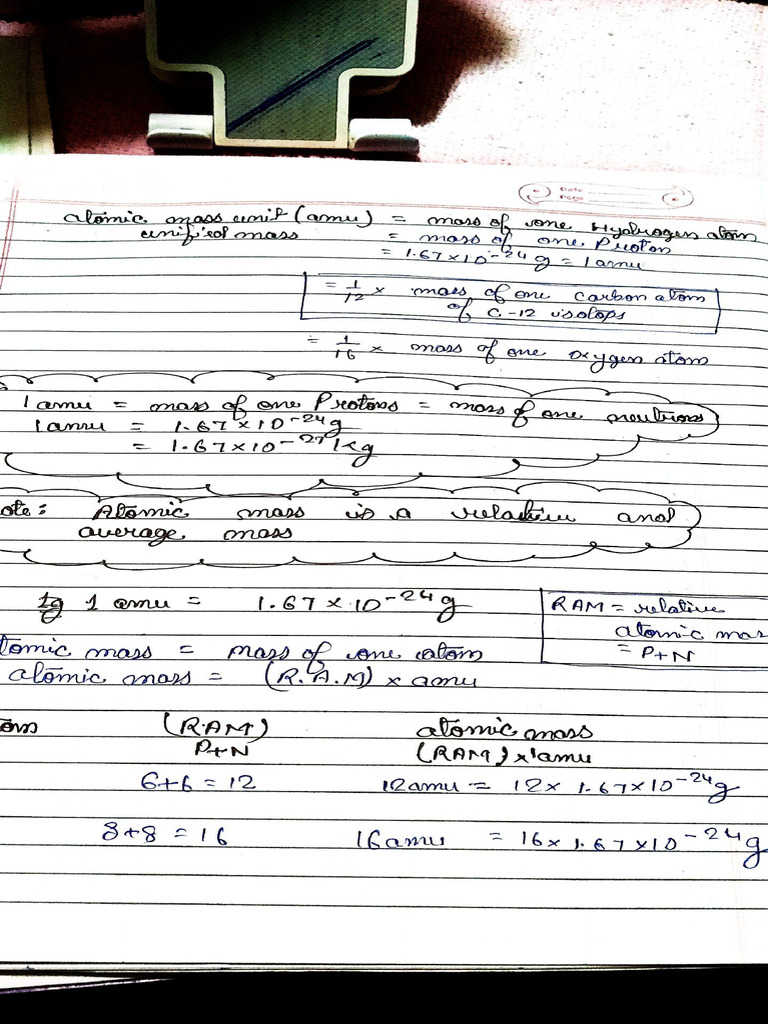 Date
Page
atomic mass unit (amu) = mass of one Hydrogen atom
unified mass = mass of one Proton
= 1.67×10⁻²⁴ g = 1 amu
= 1/12 × mass of one carbon atom
of C-12 isotops
= 1/16 × mass of one oxygen atom
1 amu = mass of one Protons = mass of one neutrons
1 amu = 1.67×10⁻²⁴ g
= 1.67×10⁻²⁷ kg
ote: Atomic mass is a relative and
average mass
1 amu = 1.67×10⁻²⁴ g
RAM = relative
atomic mas
= P+N
tomic mass = mass of one atom
atomic mass = (R.A.M) × amu
(RAM) atomic mass
P+N (RAM) × 1amu
6+6 = 12 12 amu = 12 × 1.67×10⁻²⁴ g
8+8 = 16 16 amu = 16 × 1.67×10⁻²⁴ g